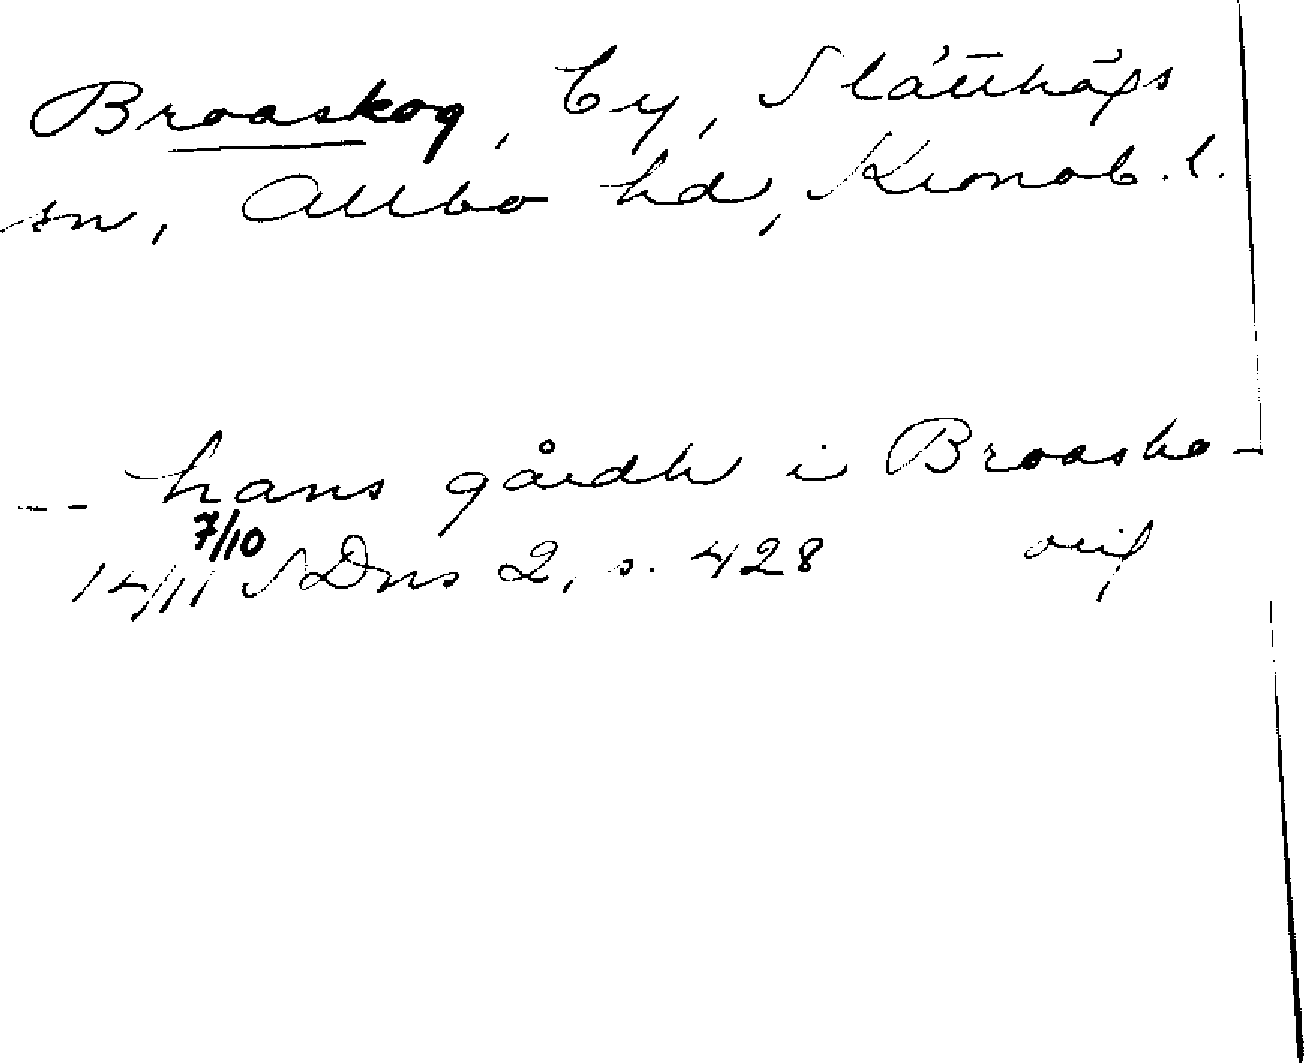 Broaskog, by, Slätthögs
sn, Allbo hd, Kronob. l.
-- hans gårdh i Broasko-
7/10
1411 SDns 2, s. 428 orig